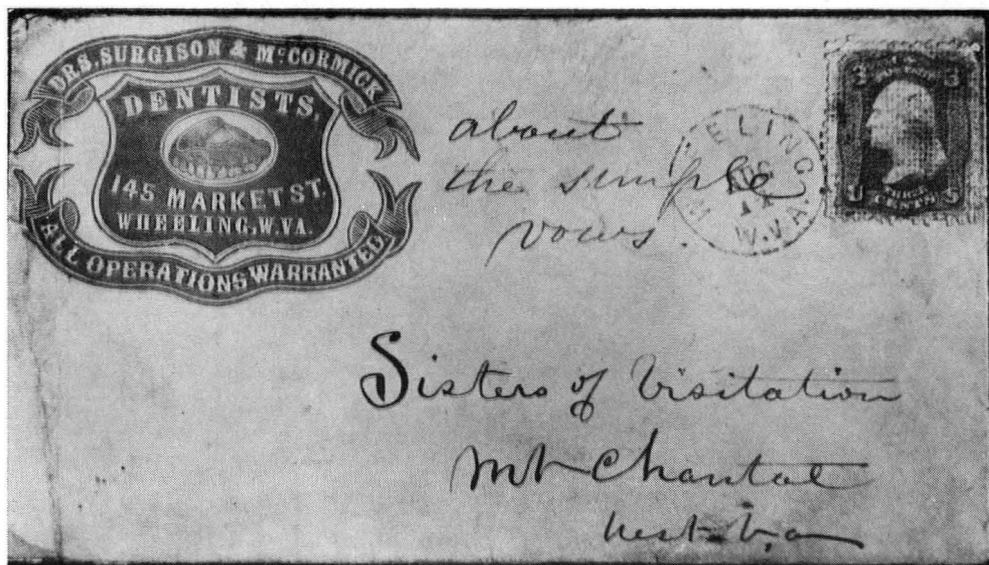 DRS. SURGISON & McCORMICK
DENTISTS,
145 MARKET ST.
WHEELING, W.VA.
ALL OPERATIONS WARRANTED
about
the simple
vows.
W.VA.
3 3
U CENTS S
Sisters of Visitation
Mt Chantal
West. Va